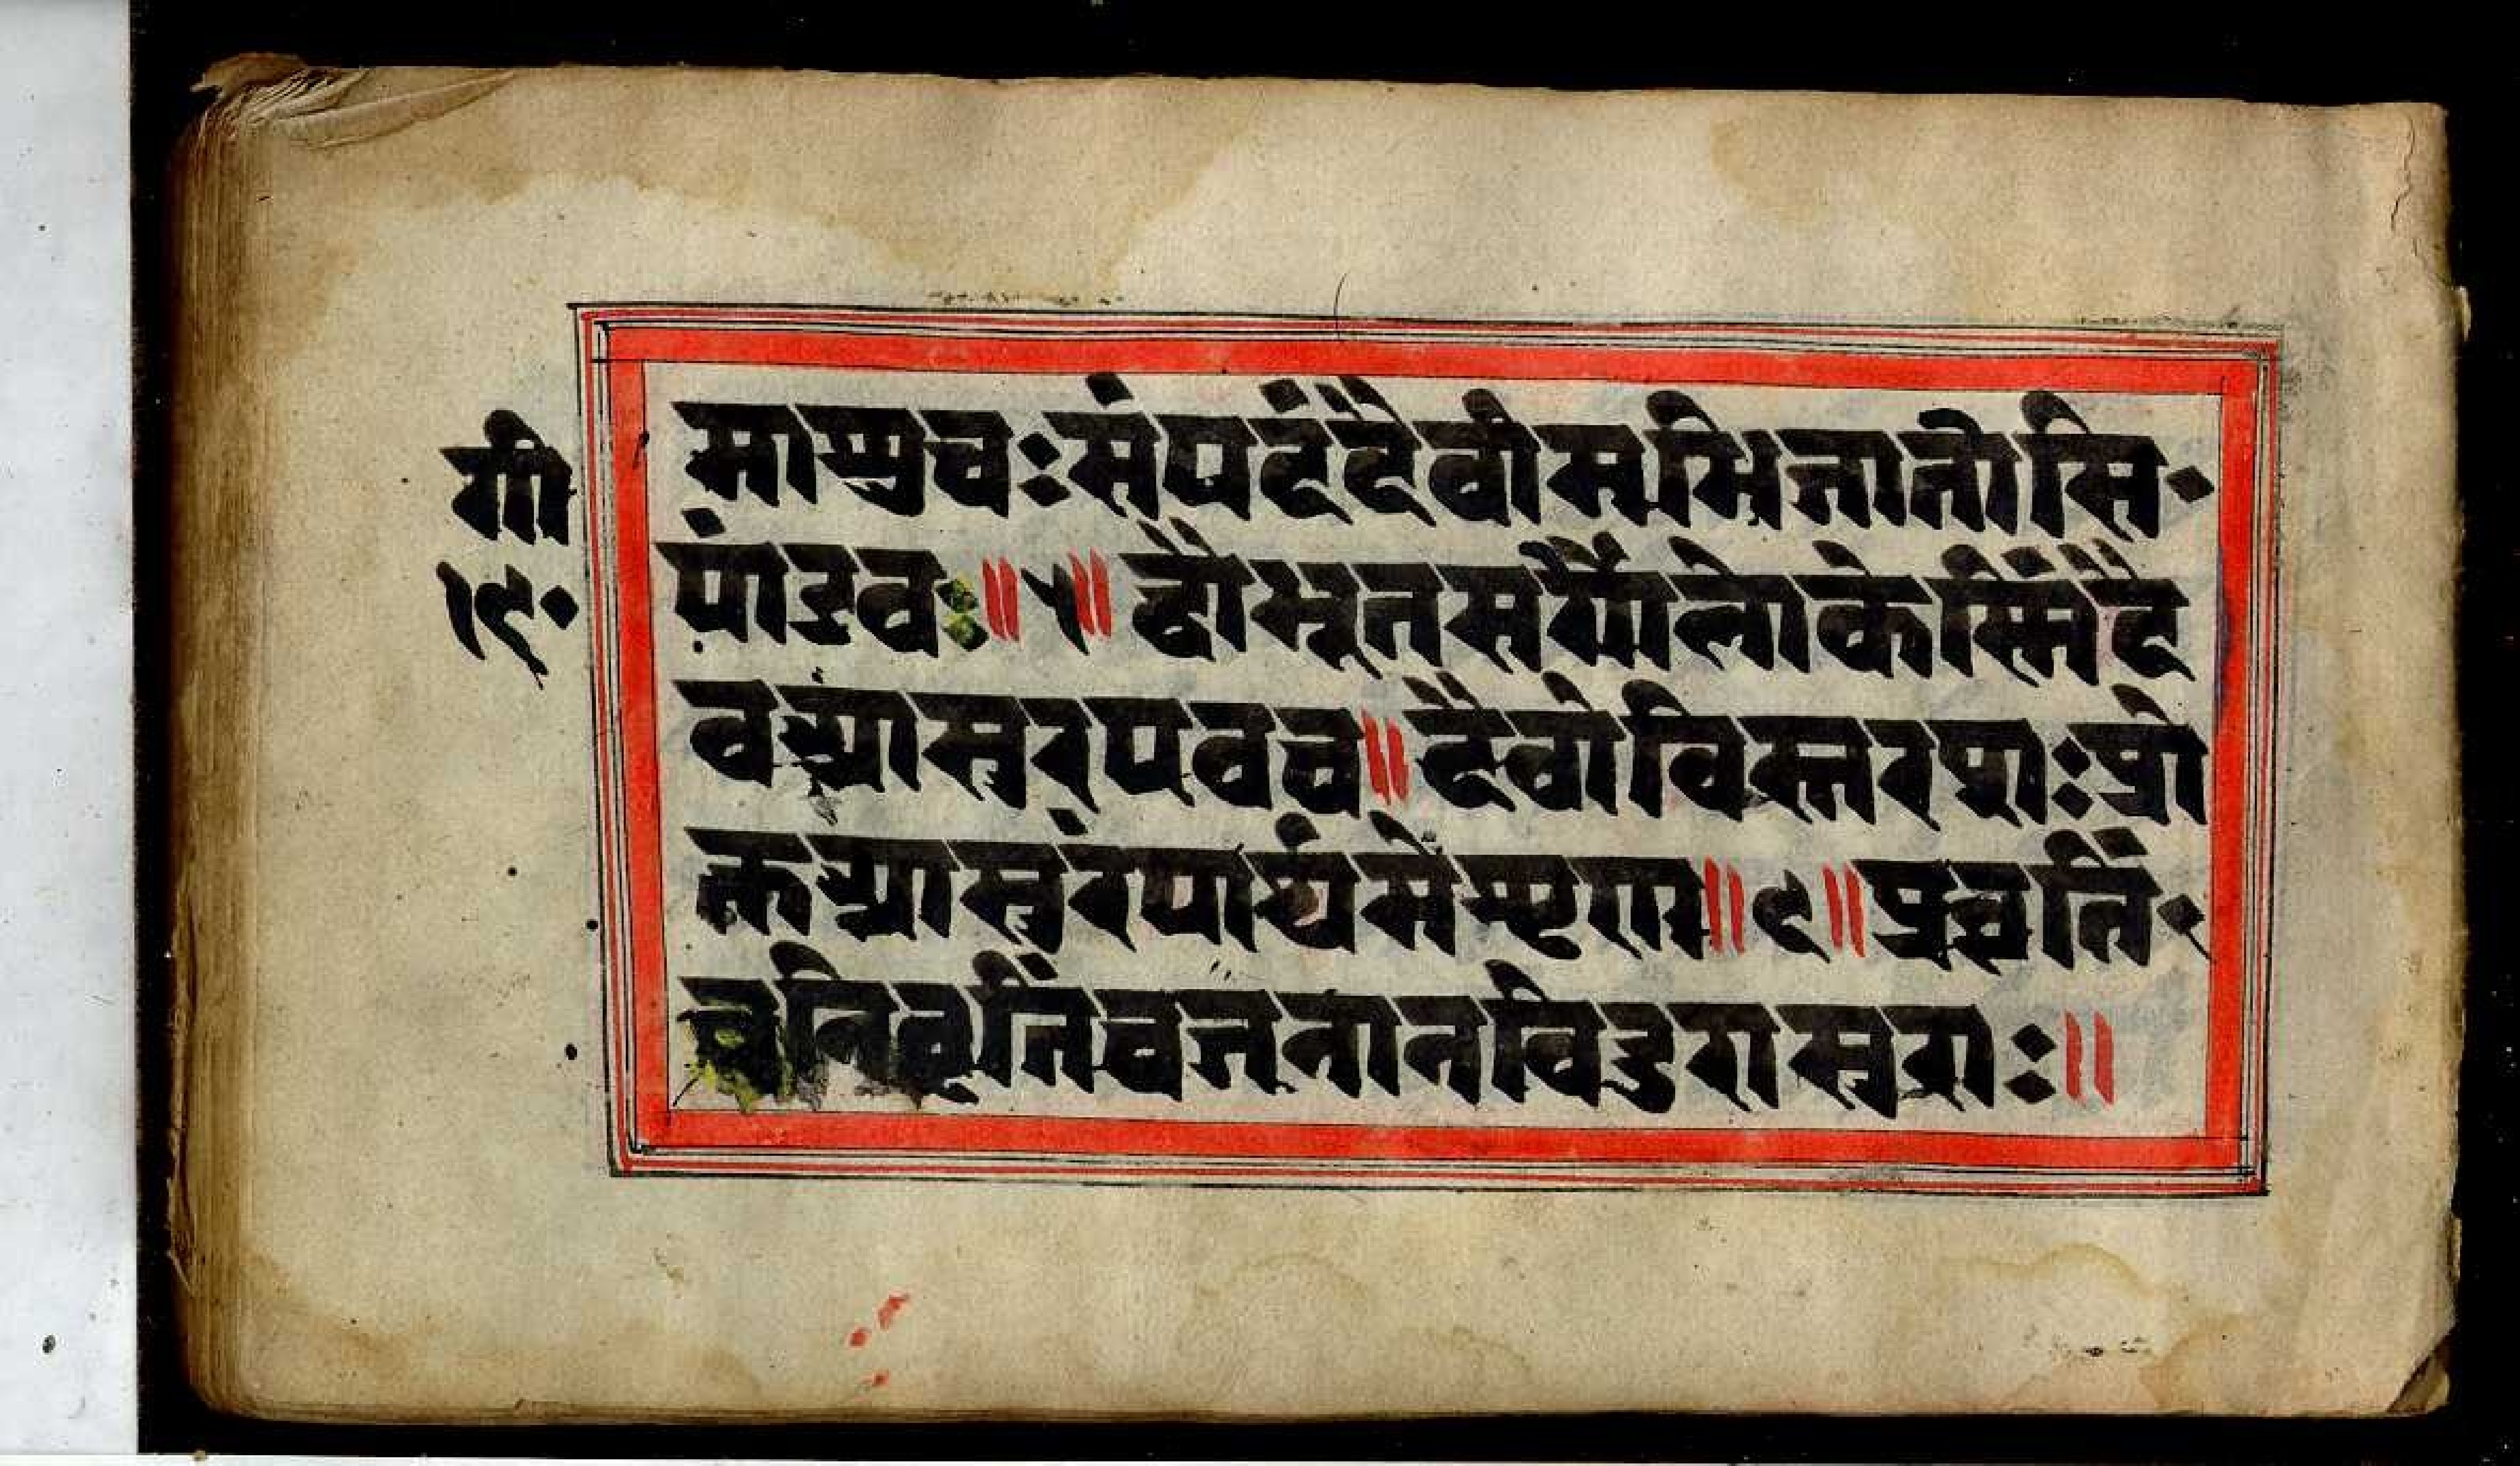 गी
१९॰
माशुचःसंपदंदैवीसमभिजातोसि॰
पांडव॥५॥द्वौभूतसर्गौलोकेस्मिंदै
वआसुरएवच॥दैवोविस्तरशःप्रो
क्तआसुरंपार्थमेशृणु॥६॥प्रवृतिं॰
चनिवृतिंचजनानविदुरासुराः॥